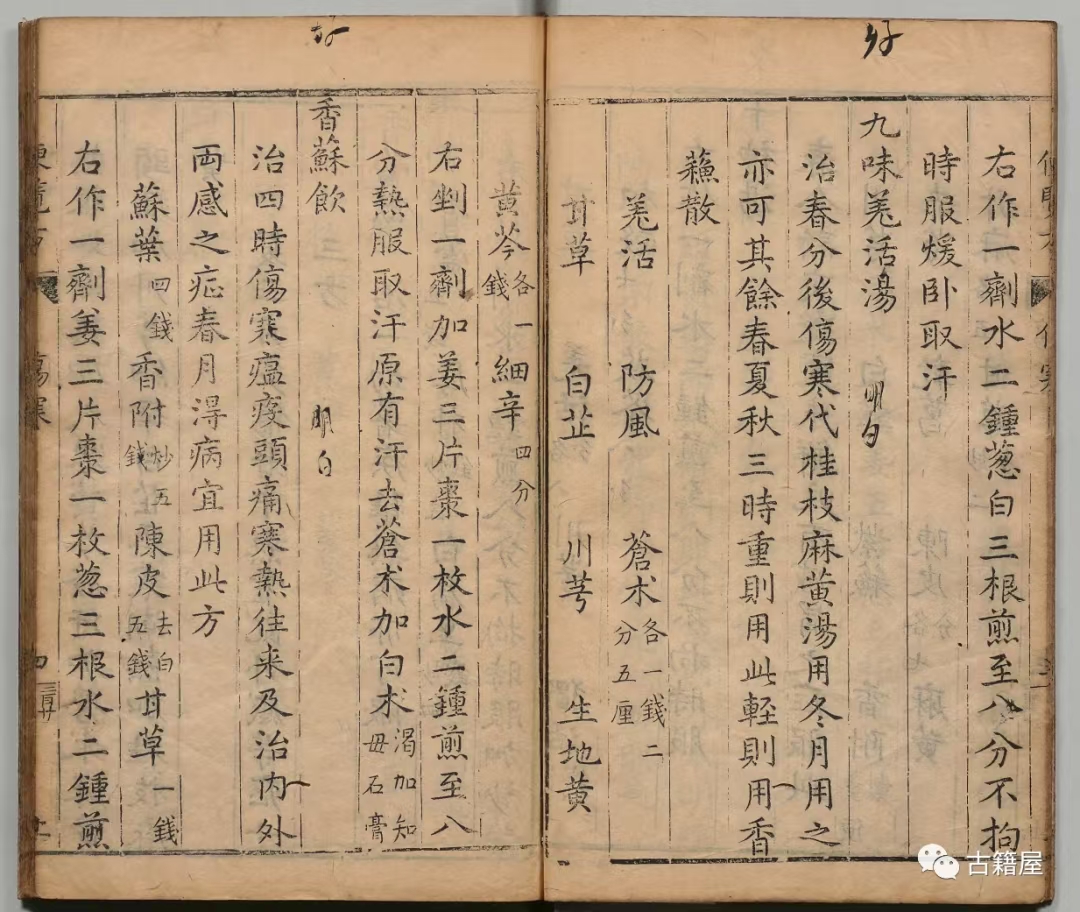 好
右作一劑水二鍾葱白三根煎至八分不拘
時服煖卧取汗
九味羗活湯 明白
治春分後傷寒代桂枝麻黄湯用冬月用之
亦可其餘春夏秋三時重則用此輕則用香
蘓散
羗活 防風 蒼术各一錢二分五厘
甘草 白芷 川芎 生地黄
好
黄芩各一錢 細辛四分
右剉一劑加姜三片棗一枚水二鍾煎至八
分熱服取汗原有汗去蒼术加白术渴加知母石膏
香蘇飲 明白
治四時傷寒瘟疫頭痛寒熱往来及治内外
両感之症春月得病宜用此方
蘇葉四錢 香附炒五錢 陳皮去白五錢 甘草一錢
右作一劑姜三片棗一枚葱三根水二鍾煎
四
古籍屋